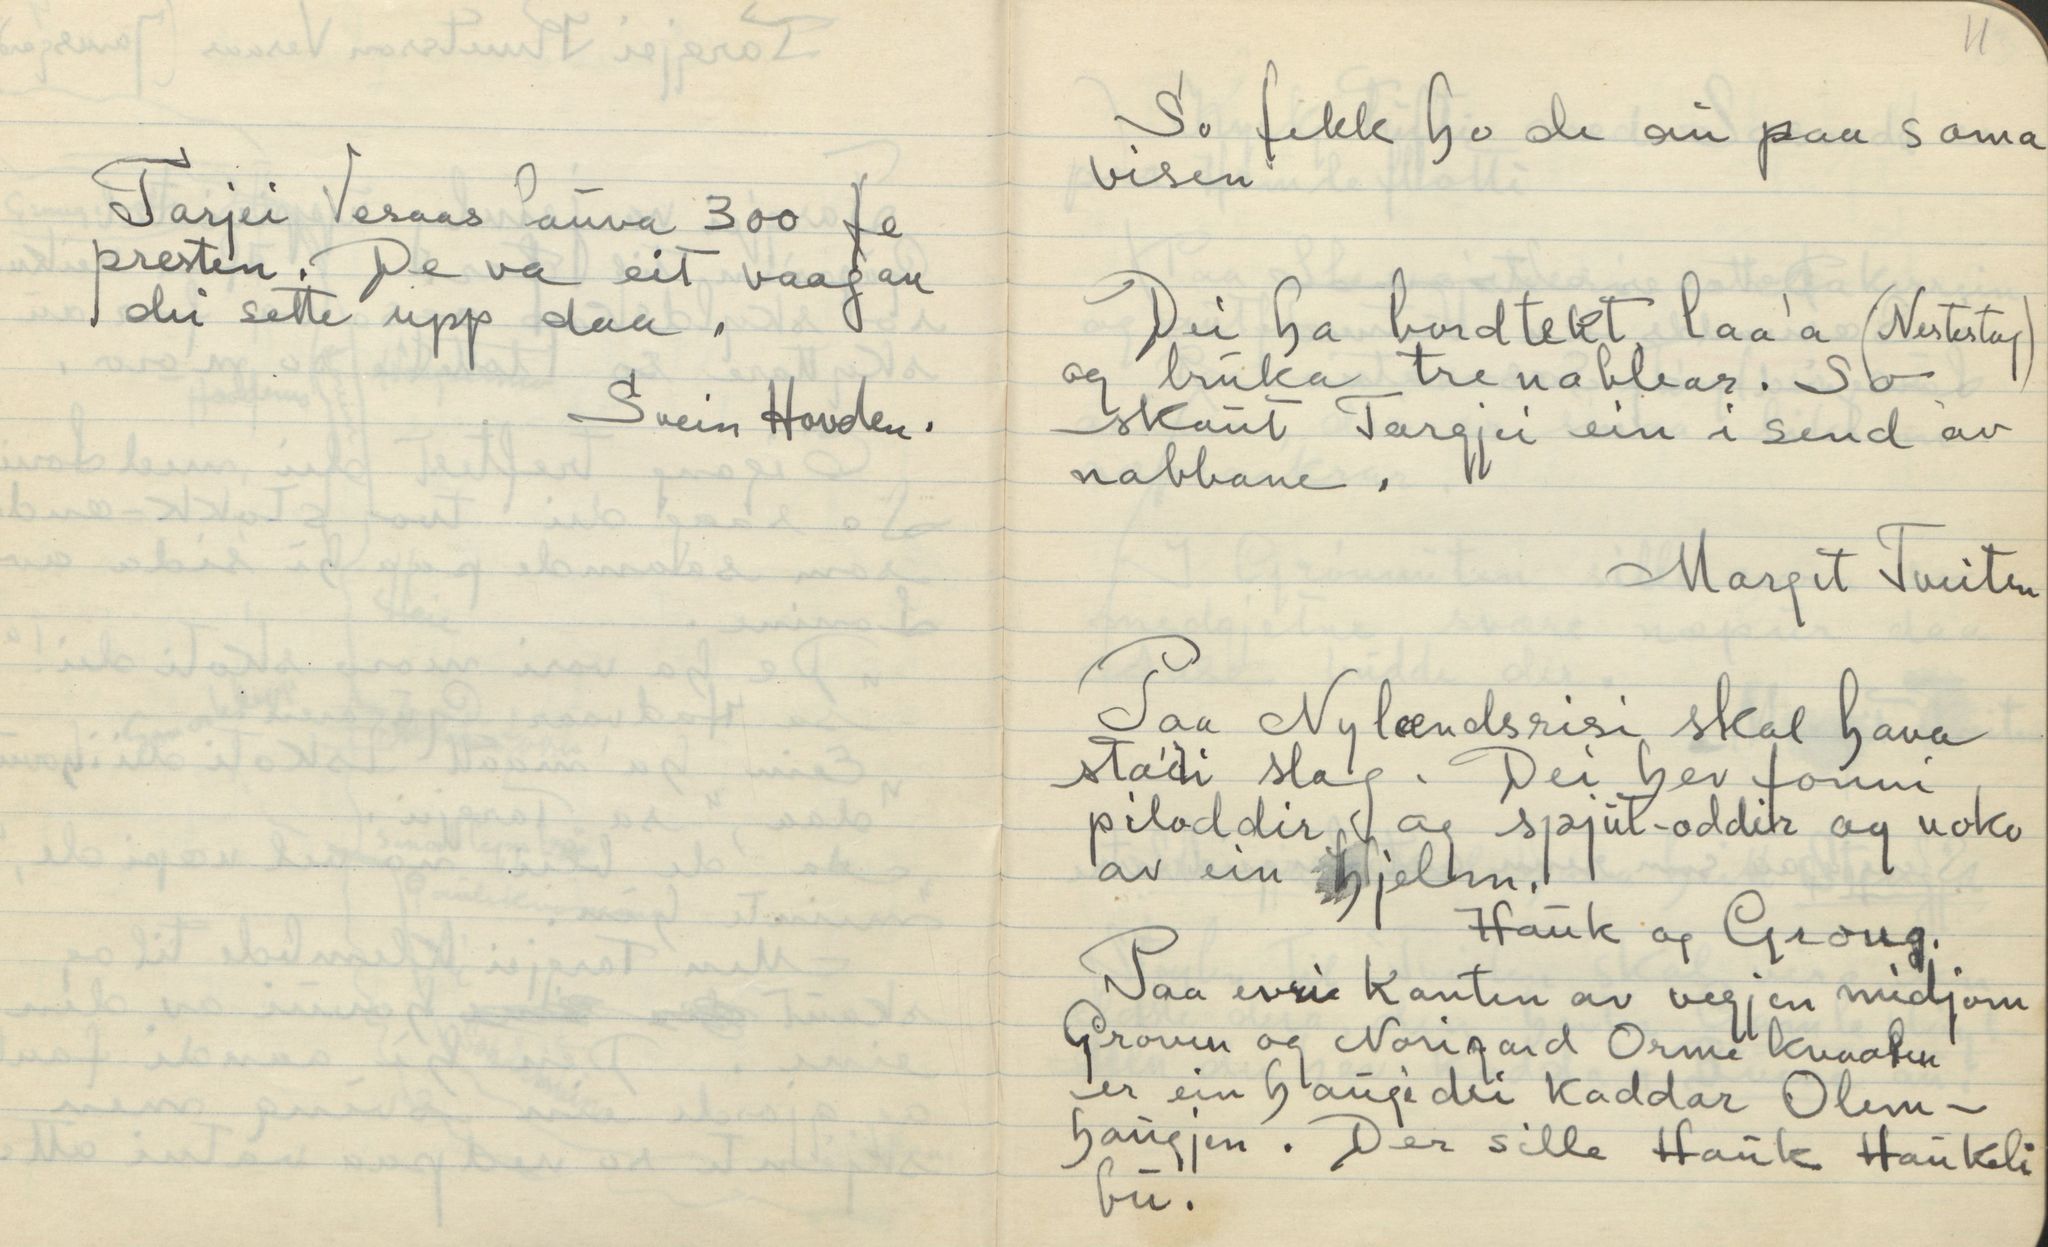 Tarjei Vesaas lauva 300 fe
presten. De va eit vaagan
dei sette upp daa.
Svein Hovden.
11
So fekk ho de au paa soma
visen
Dei ha bordtekt laa'a (Nestestog)
og bruka trenablear. So
skaut Targjei ein i send av
nabbane.
Margit Tveiten
Paa Nylændsrisi skal hava
stadi slag. Dei hev fonni
piloddir og spjut-oddir og noko
av ein hjelm.
Hauk og Groug.
Paa evrie kanten av vegjen midjom
Groven og Norigard Orme kvaaten
er ein haug dei kaddar Olem-
haugjen. Der sille Hauk Haukeli
bu.